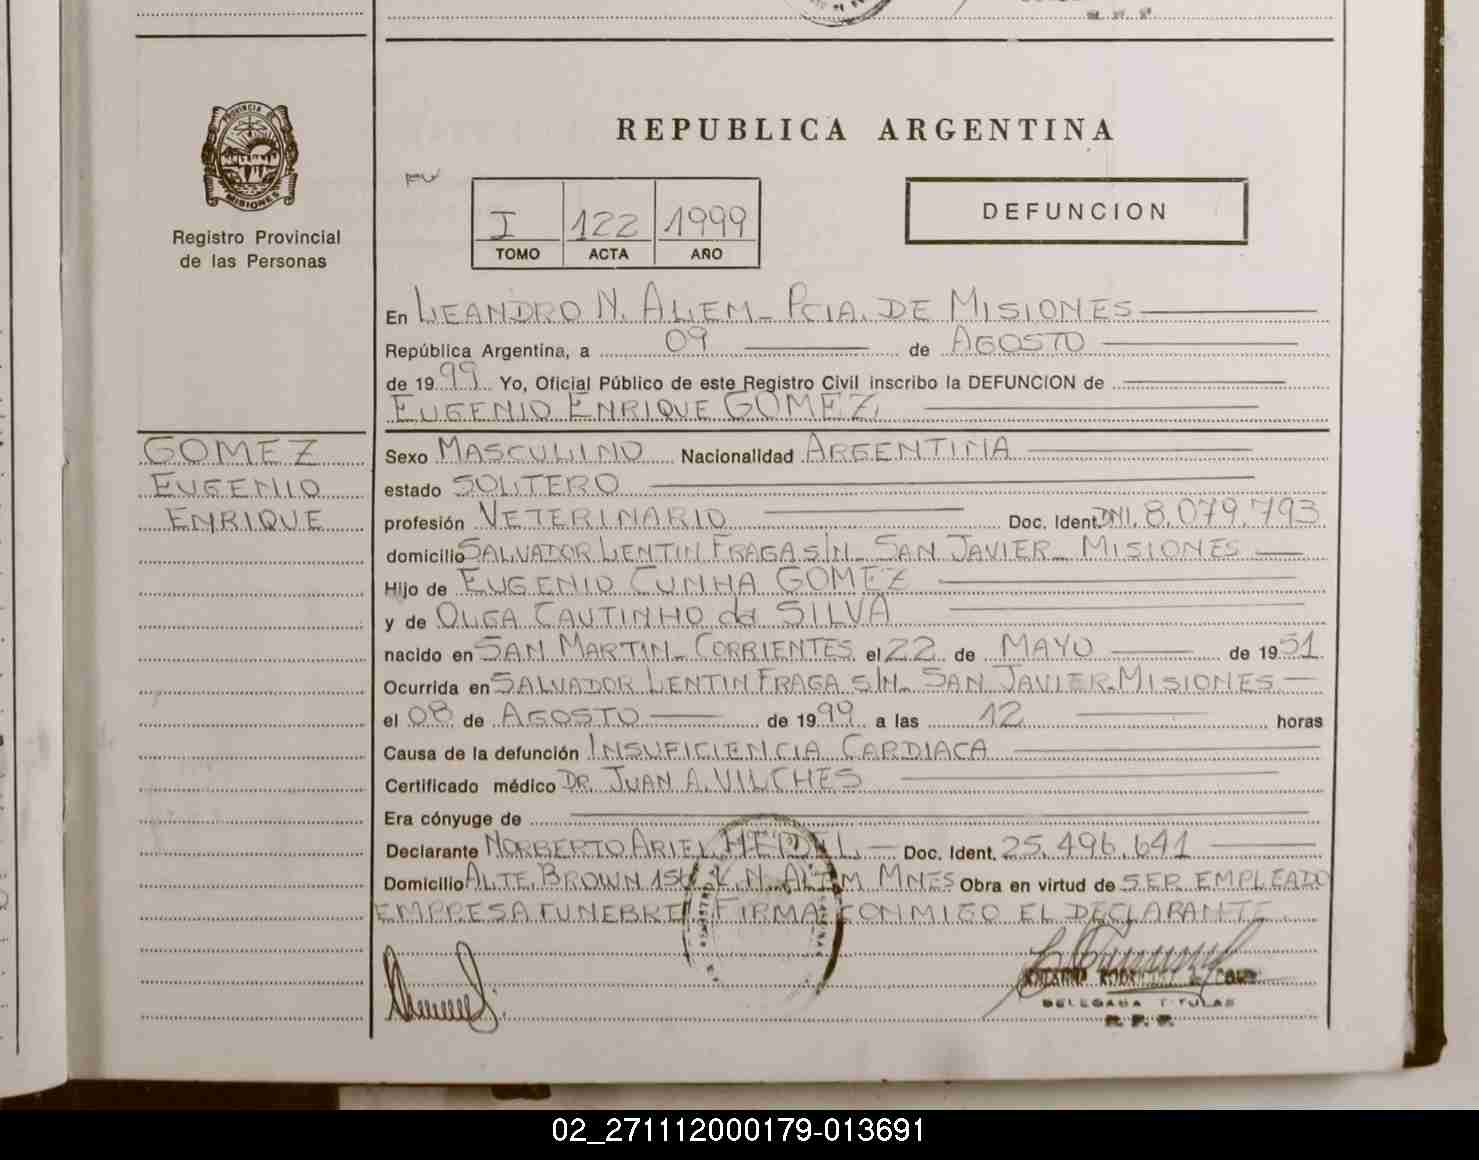 REPUBLICA ARGENTINA
PROVINCIA DE
MISIONES
Registro Provincial
de las Personas
I 122 1999
TOMO ACTA AÑO
DEFUNCION
En LEANDRO N. ALEM - PCIA. DE MISIONES
República Argentina, a 09 de AGOSTO
de 1999 Yo, Oficial Público de este Registro Civil inscribo la DEFUNCION de
EUGENIO ENRIQUE GOMEZ
GOMEZ
EUGENIO
ENRIQUE
Sexo MASCULINO Nacionalidad ARGENTINA
estado SOLTERO
profesión VETERINARIO Doc. Ident. DNI. 8.079.793
domicilio SALVADOR LENTIN FRAGA S/N - SAN JAVIER - MISIONES
Hijo de EUGENIO CUNHA GOMEZ
y de OLGA CAUTINHO da SILVA
nacido en SAN MARTIN - CORRIENTES el 22 de MAYO de 1951
Ocurrida en SALVADOR LENTIN FRAGA S/N - SAN JAVIER - MISIONES
el 08 de AGOSTO de 1999 a las 12 horas
Causa de la defunción INSUFICIENCIA CARDIACA
Certificado médico DR. JUAN A. VILCHES
Era cónyuge de
Declarante NORBERTO ARIEL HEDEL Doc. Ident. 25.496.641
Domicilio ALTE. BROWN 156 L. N. ALEM MNES Obra en virtud de SER EMPLEADO
EMPRESA FUNEBRE. FIRMA CONMIGO EL DECLARANTE
DELEGADA TITULAR
R. P. P.
02_271112000179-013691